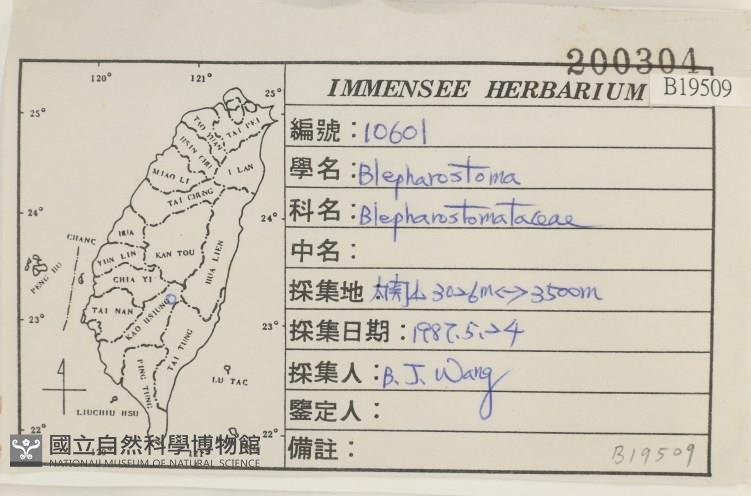 200304
IMMENSEE HERBARIUM
B19509
編號：10601
學名：Blepharostoma
科名：Blepharostomataceae
中名：
採集地 3026m<->3500m
採集日期：1987.5.24
採集人：B. J. Wang
鑒定人：
備註：
B19509
120° 121°
25° 25°
TAO YUAN
TAI PEI
HSIN CHU
I LAN
MIAO LI
TAI CHUNG
24° 24°
CHANG HUA
YUN LIN
NAN TOU
HUA LIEN
PENG HU
CHIA YI
TAI NAN
KAO HSIUNG
23° 23°
TAI TUNG
PING TUNG
LU TAO
LIUCHIU HSU
22° 22°
國立自然科學博物館
NATIONAL MUSEUM OF NATURAL SCIENCE